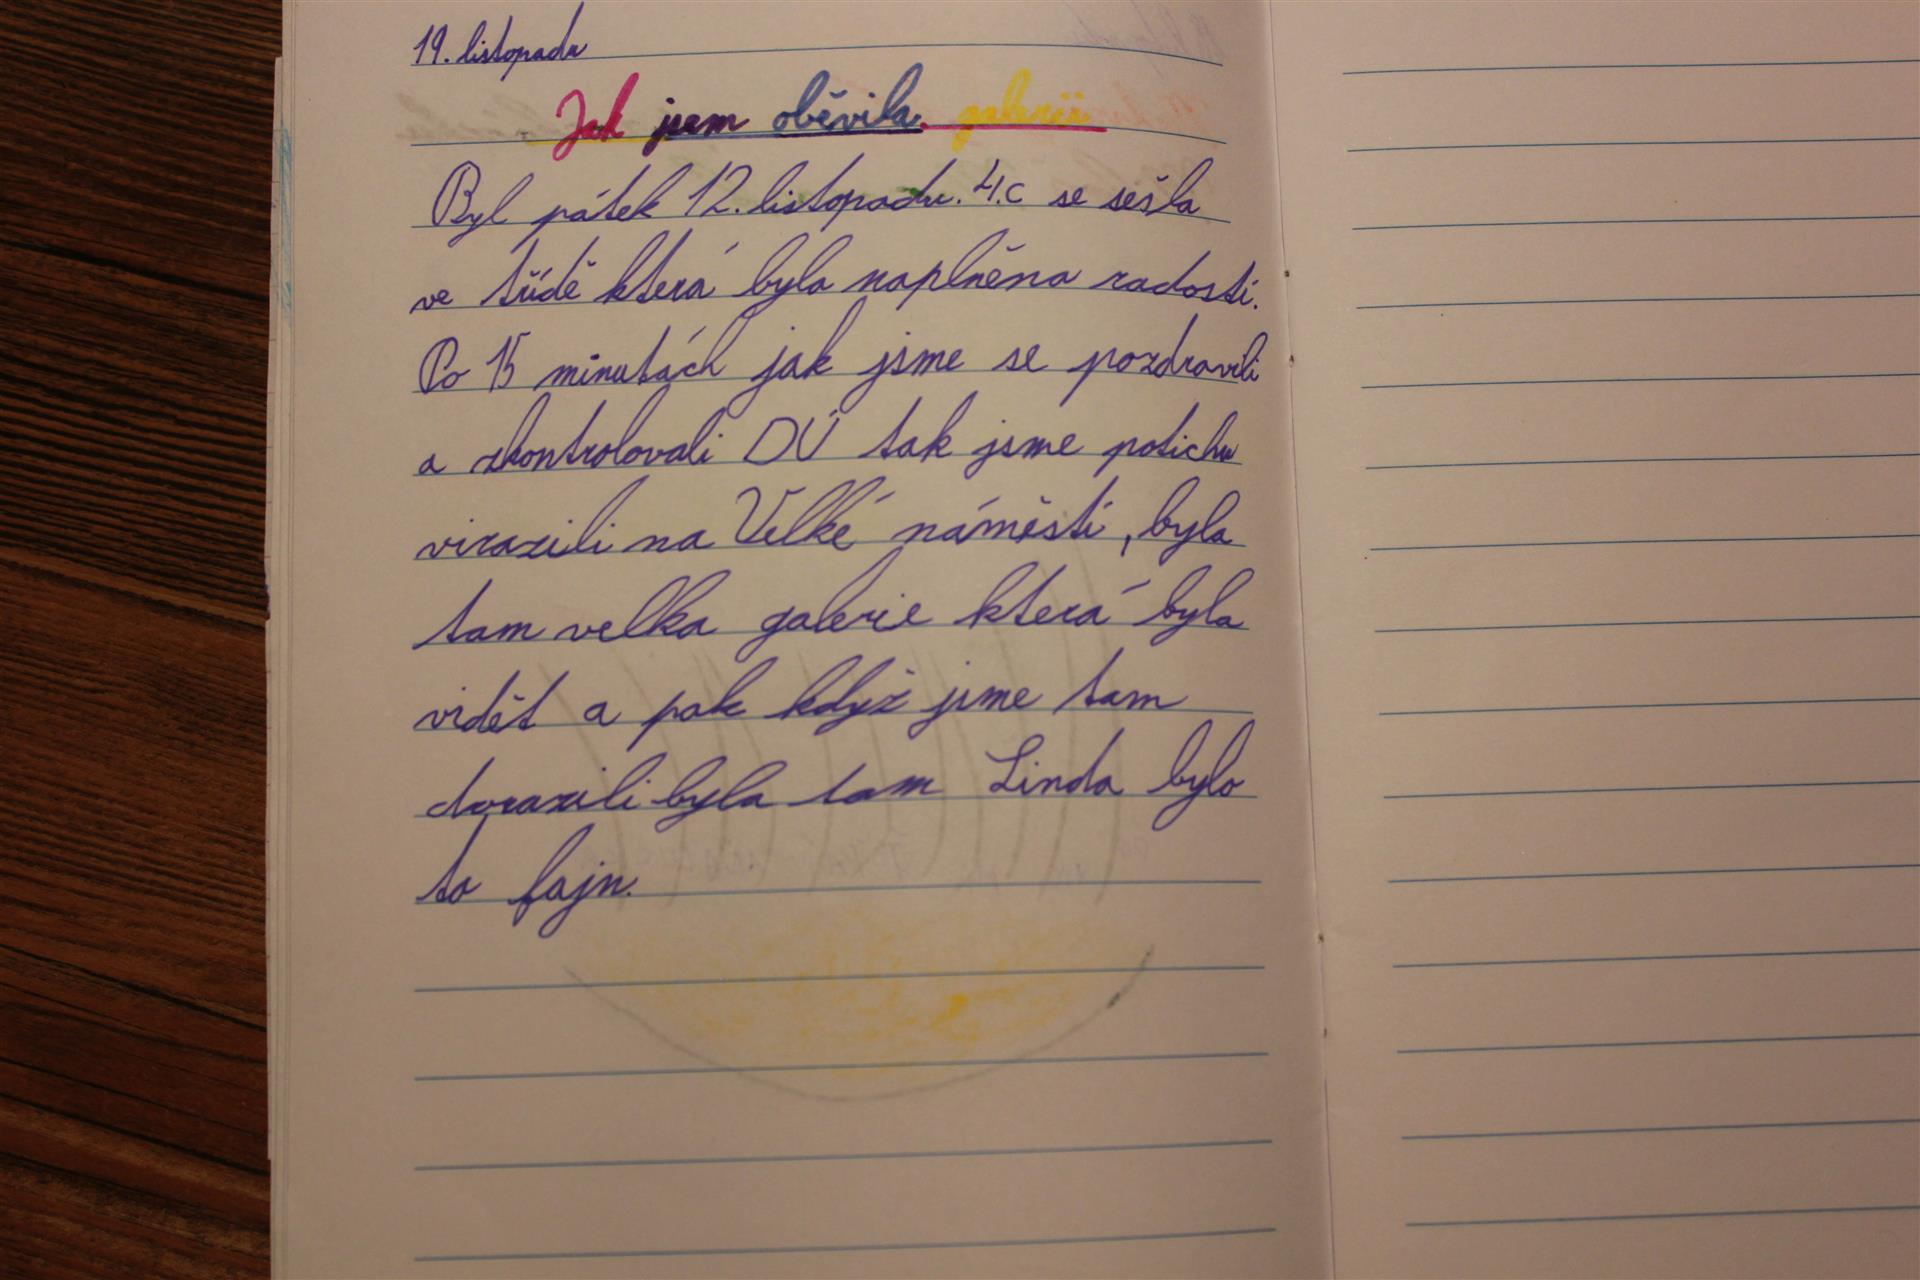 19. listopadu
Jak jsem oběvila galerii
Byl pátek 12. listopadu. 4.c se sešla
ve třídě která byla naplněna radostí.
Po 15 minutách jak jsme se pozdravili
a zkontrolovali DÚ tak jsme potichu
virazili na Velké náměstí, byla
tam velka galerie která byla
vidět a pak když jsme tam
dorazili byla tam Linda bylo
to fajn.